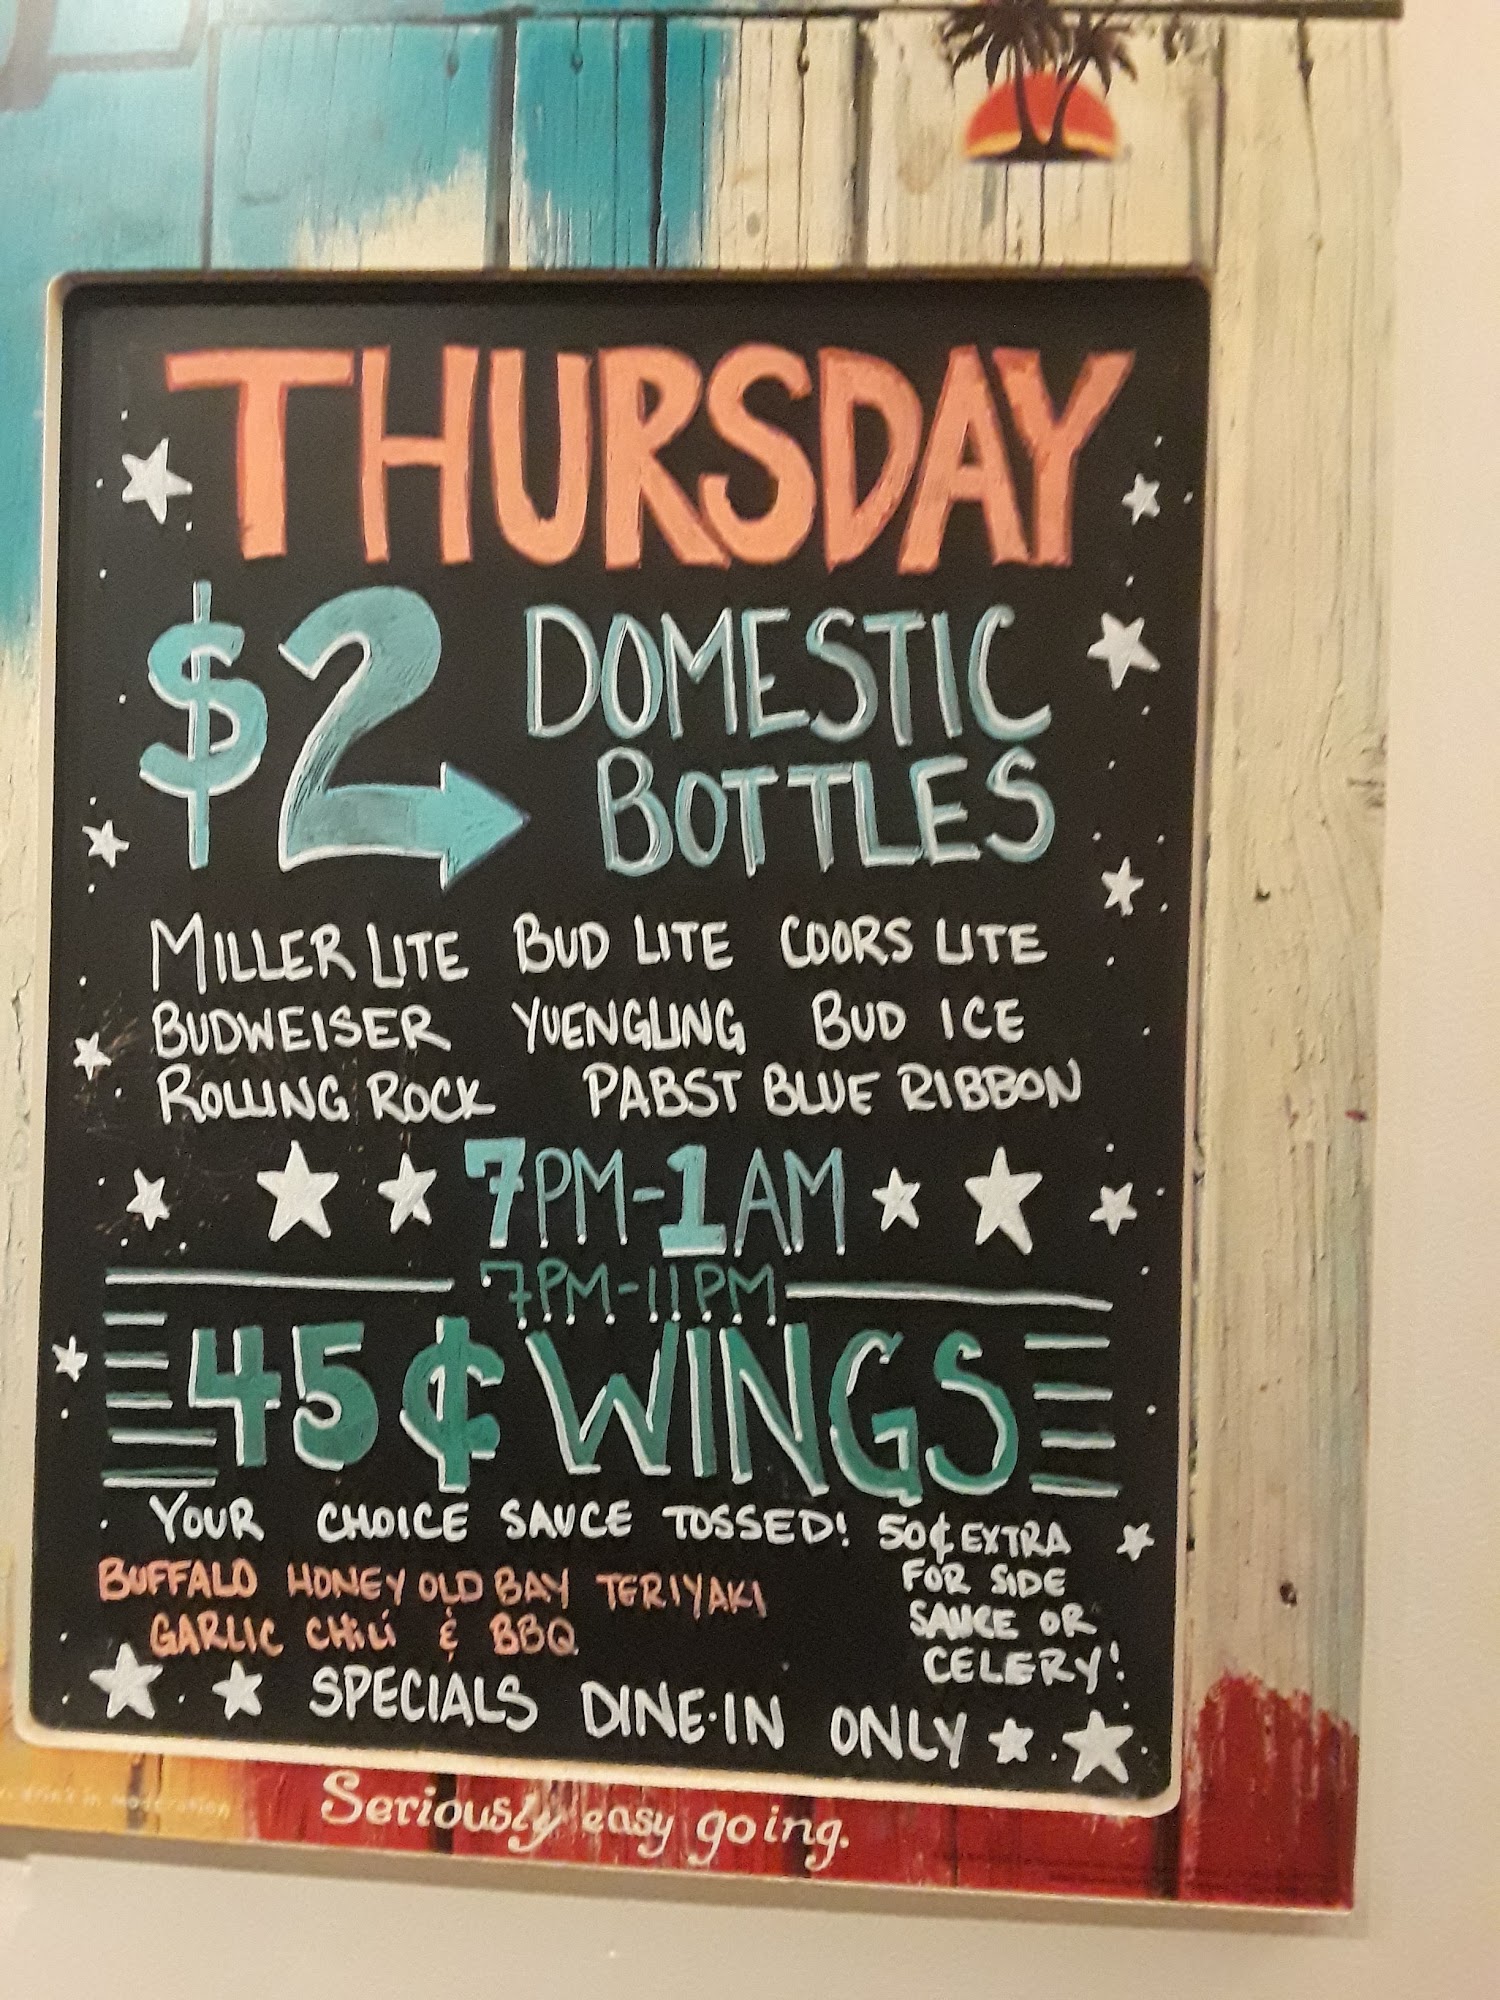 THURSDAY
$2 DOMESTIC
BOTTLES
MILLER LITE BUD LITE COORS LITE
BUDWEISER YUENGLING BUD ICE
ROLLING ROCK PABST BLUE RIBBON
7PM-1AM
7PM-11PM
45¢ WINGS
YOUR CHOICE SAUCE TOSSED!
BUFFALO HONEY OLD BAY TERIYAKI
GARLIC CHiLi & BBQ
50¢ EXTRA
FOR SIDE
SAUCE OR
CELERY!
SPECIALS DINE-IN ONLY
drink in moderation
Seriously easy going.